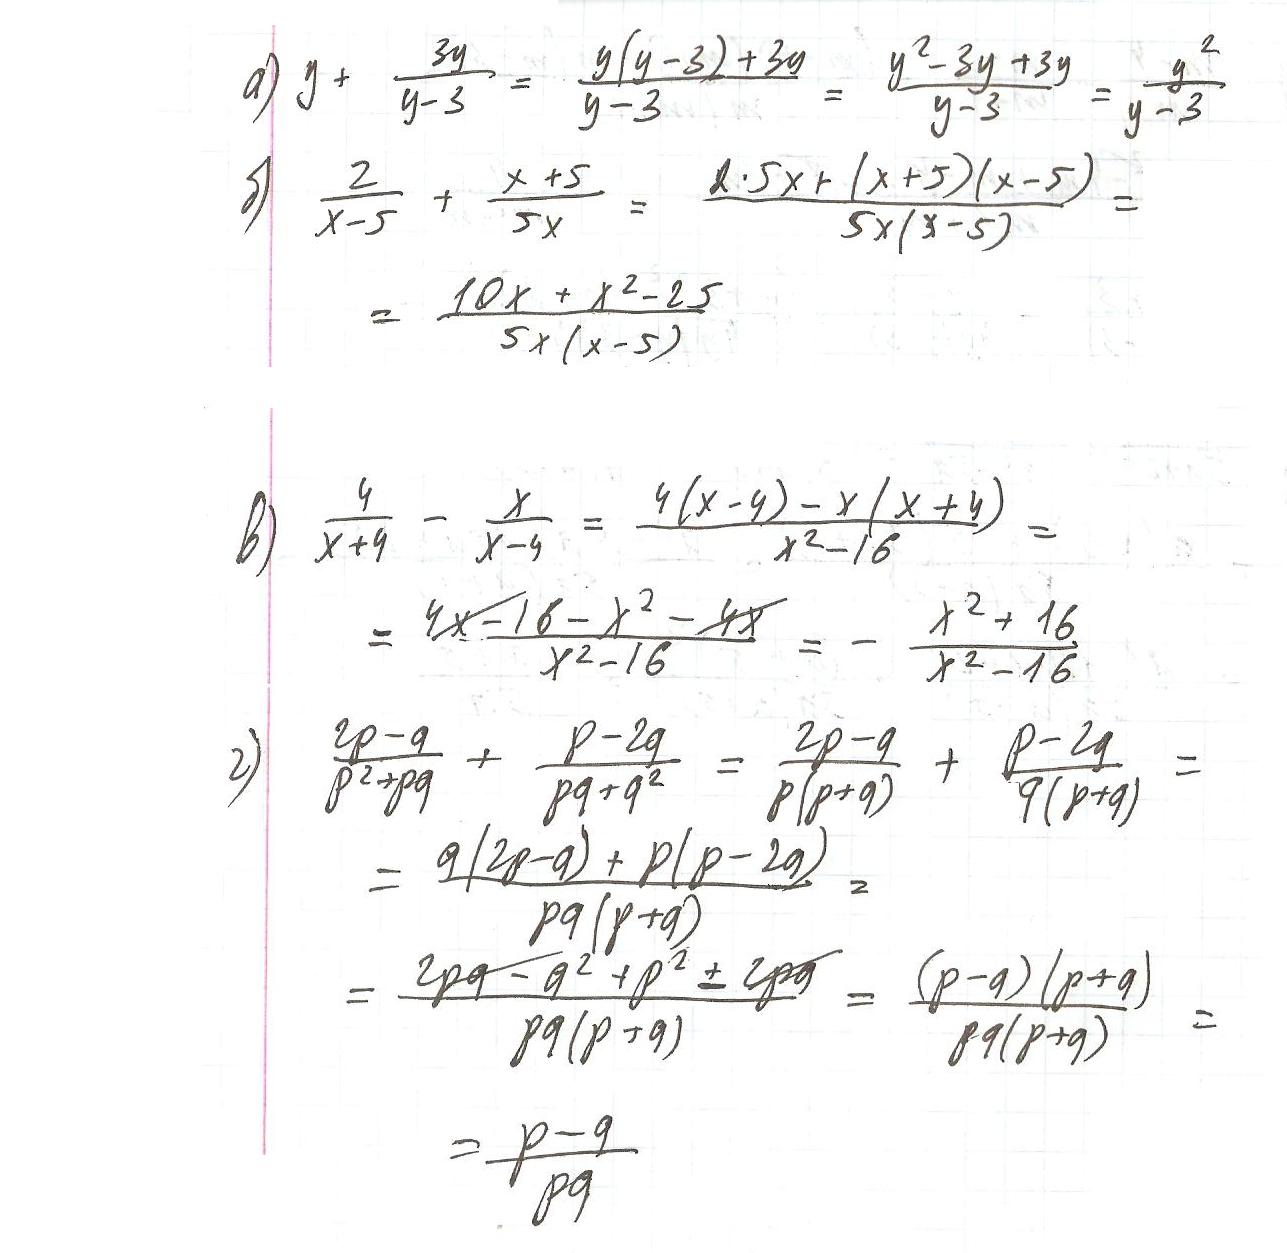 а) y + 3y/(y-3) = (y(y-3)+3y)/(y-3) = (y²-3y+3y)/(y-3) = y²/(y-3)
б) 2/(x-5) + (x+5)/5x = (2·5x+(x+5)(x-5))/(5x(x-5)) =
= (10x+x²-25)/(5x(x-5))
в) 4/(x+4) - x/(x-4) = (4(x-4)-x(x+4))/(x²-16) =
= (4x-16-x²-4x)/(x²-16) = - (x²+16)/(x²-16)
г) (2p-q)/(p²+pq) + (p-2q)/(pq+q²) = (2p-q)/(p(p+q)) + (p-2q)/(q(p+q)) =
= (q(2p-q)+p(p-2q))/(pq(p+q)) =
= (2pq-q²+p²±2pq)/(pq(p+q)) = ((p-q)(p+q))/(pq(p+q)) =
= (p-q)/pq